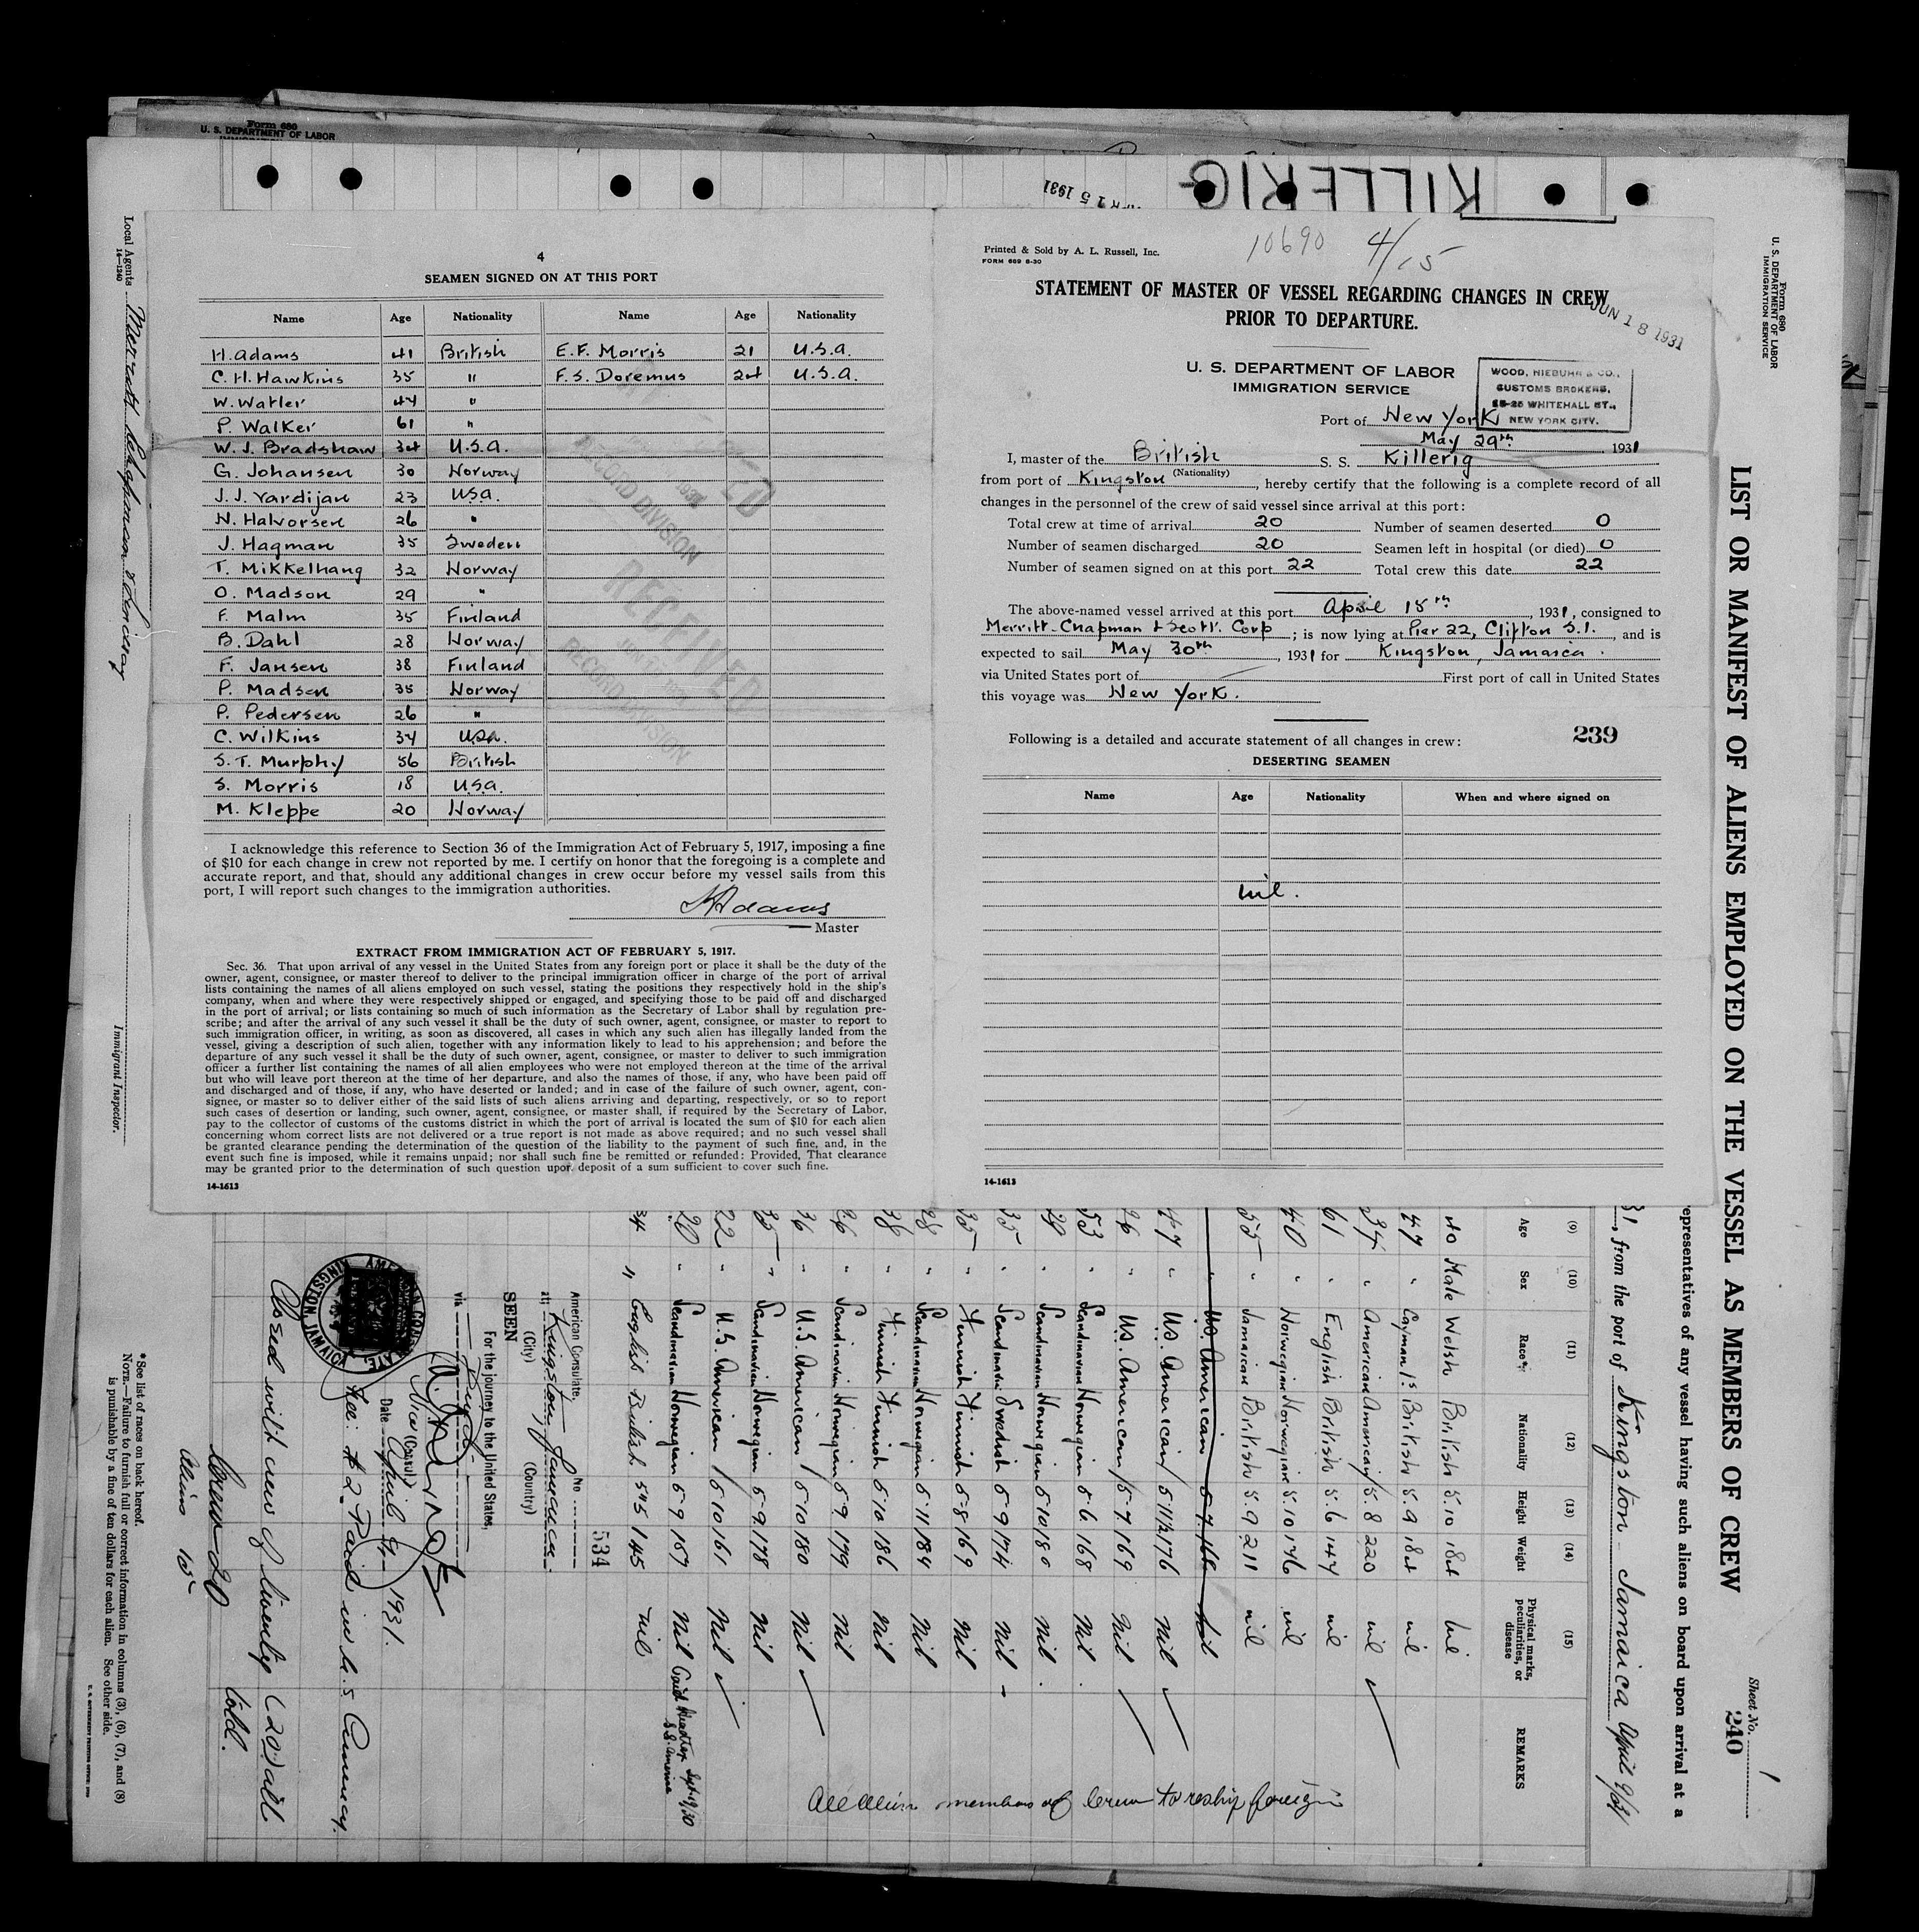 Form 680
U. S. DEPARTMENT OF LABOR
KILLERIG
15 1931
4
SEAMEN SIGNED ON AT THIS PORT
Name Age Nationality Name Age Nationality
H. Adams 41 British E.F. Morris 21 U.S.A.
C. H. Hawkins 35 " F.S. Doremus 24 U.S.A.
W. Watler 44 "
P. Walker 61 "
W. J. Bradshaw 34 U.S.A.
G. Johansen 30 Norway
J. J. Vardijan 23 U.S.A.
N. Halvorsen 26 "
J. Hagman 35 Sweden
T. Mikkelhang 32 Norway
O. Madson 29 "
F. Malm 35 Finland
B. Dahl 28 Norway
F. Jansen 38 Finland
P. Madsen 35 Norway
P. Pedersen 26 "
C. Wilkins 34 U.S.A.
S. T. Murphy 56 British
S. Morris 18 U.S.A.
M. Kleppe 20 Norway
RECORD DIVISION
RECEIVED
RECORD DIVISION
I acknowledge this reference to Section 36 of the Immigration Act of February 5, 1917, imposing a fine
of $10 for each change in crew not reported by me. I certify on honor that the foregoing is a complete and
accurate report, and that, should any additional changes in crew occur before my vessel sails from this
port, I will report such changes to the immigration authorities.
H Adams
Master
EXTRACT FROM IMMIGRATION ACT OF FEBRUARY 5, 1917.
Sec. 36. That upon arrival of any vessel in the United States from any foreign port or place it shall be the duty of the
owner, agent, consignee, or master thereof to deliver to the principal immigration officer in charge of the port of arrival
lists containing the names of all aliens employed on such vessel, stating the positions they respectively hold in the ship's
company, when and where they were respectively shipped or engaged, and specifying those to be paid off and discharged
in the port of arrival; or lists containing so much of such information as the Secretary of Labor shall by regulation pre-
scribe; and after the arrival of any such vessel it shall be the duty of such owner, agent, consignee, or master to report to
such immigration officer, in writing, as soon as discovered, all cases in which any such alien has illegally landed from the
vessel, giving a description of such alien, together with any information likely to lead to his apprehension; and before the
departure of any such vessel it shall be the duty of such owner, agent, consignee, or master to deliver to such immigration
officer a further list containing the names of all alien employees who were not employed thereon at the time of the arrival
but who will leave port thereon at the time of her departure, and also the names of those, if any, who have been paid off
and discharged and of those, if any, who have deserted or landed; and in case of the failure of such owner, agent, con-
signee, or master so to deliver either of the said lists of such aliens arriving and departing, respectively, or so to report
such cases of desertion or landing, such owner, agent, consignee, or master shall, if required by the Secretary of Labor,
pay to the collector of customs of the customs district in which the port of arrival is located the sum of $10 for each alien
concerning whom correct lists are not delivered or a true report is not made as above required; and no such vessel shall
be granted clearance pending the determination of the question of the liability to the payment of such fine, and, in the
event such fine is imposed, while it remains unpaid; nor shall such fine be remitted or refunded: Provided, That clearance
may be granted prior to the determination of such question upon deposit of a sum sufficient to cover such fine.
14-1613
10690 4/15
Printed & Sold by A. L. Russell, Inc.
FORM 689 8-30
STATEMENT OF MASTER OF VESSEL REGARDING CHANGES IN CREW
PRIOR TO DEPARTURE.
JUN 18 1931
U. S. DEPARTMENT OF LABOR
IMMIGRATION SERVICE
WOOD, NIEBUHR & CO.,
CUSTOMS BROKERS,
25-26 WHITEHALL ST.,
NEW YORK CITY.
Port of New York
May 29th 1931
I, master of the British S. S. Killerig
(Nationality)
from port of Kingston, hereby certify that the following is a complete record of all
changes in the personnel of the crew of said vessel since arrival at this port:
Total crew at time of arrival 20 Number of seamen deserted 0
Number of seamen discharged 20 Seamen left in hospital (or died) 0
Number of seamen signed on at this port 22 Total crew this date 22
The above-named vessel arrived at this port April 15th, 1931, consigned to
Merritt-Chapman & Scott. Corp; is now lying at Pier 22, Clifton S.I., and is
expected to sail May 30th, 1931 for Kingston, Jamaica.
via United States port of First port of call in United States
this voyage was New York.
239
Following is a detailed and accurate statement of all changes in crew:
DESERTING SEAMEN
Name Age Nationality When and where signed on
nil.
14-1613
Form 680
U. S. DEPARTMENT OF LABOR
IMMIGRATION SERVICE
LIST OR MANIFEST OF ALIENS EMPLOYED ON THE VESSEL AS MEMBERS OF CREW
Sheet No. 1
240
epresentatives of any vessel having such aliens on board upon arrival at a
31, from the port of Kingston - Jamaica April 9/31
(9) (10) (11) (12) (13) (14) (15)
Age Sex Race Nationality Height Weight Physical marks, peculiarities, or disease REMARKS
40 Male Welsh British 5.10 184 nil
47 " Cayman Is British 5.9 184 nil
34 " American American 5.8 220 nil
61 " English British 5.6 147 nil
40 " Norwegian Norwegian 5.10 176 nil
55 " Jamaican British 5.9 211 nil
" U.S. American 5.7 166 nil
47 " U.S. American 5 11½ 176 Nil
26 " U.S. American 5.7 169 Nil
53 " Scandinavian Norwegian 5.6 168 Nil
29 " Scandinavian Norwegian 5 10 180 Nil
35 " Scandinavian Swedish 5-9 174 Nil
35 " Finnish Finnish 5-8 169 Nil
28 " Scandinavian Norwegian 5-11 184 Nil
38 " Finnish Finnish 5 10 186 Nil
26 " Scandinavian Norwegian 5 9 179 Nil
36 " U.S. American 5 10 180 Nil
35 " Scandinavian Norwegian 5-9 178 Nil
22 " U.S. American 5 10 161 Nil
20 " Scandinavian Norwegian 5 9 157 Nil
34 " English British 5 4 5 145 nil
All alien members of Crew to reship foreign
534
American Consulate, No
at Kingston Jamaica.
(City) (Country)
SEEN
For the journey to the United States,
via
Vice (Consul)
Date April 9 1931.
Fee: $2 Paid in U.S Currency.
KINGSTON, JAMAICA
Closed with crew of twenty (20) all
told.
Crew 20
Aliens 15
* See list of races on back hereof.
NOTE.—Failure to furnish full or correct information in columns (3), (6), (7), and (8)
is punishable by a fine of ten dollars for each alien. See other side.
Local Agents Merritt Chapman
14-1240
Immigrant Inspector.